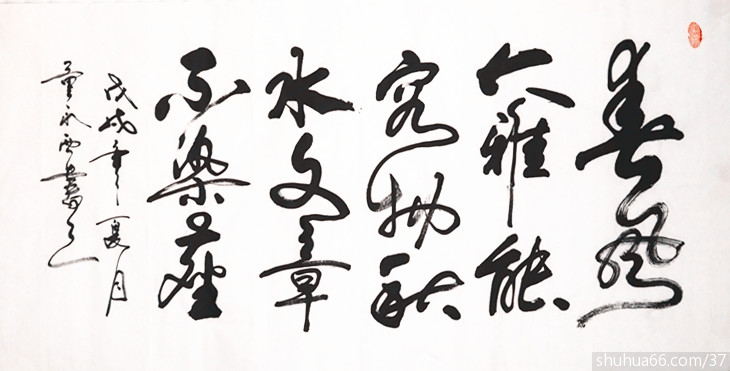 春风
大雅能
容物秋
水文章
不染尘
戊戌年夏月
书
shuhua66.com/37